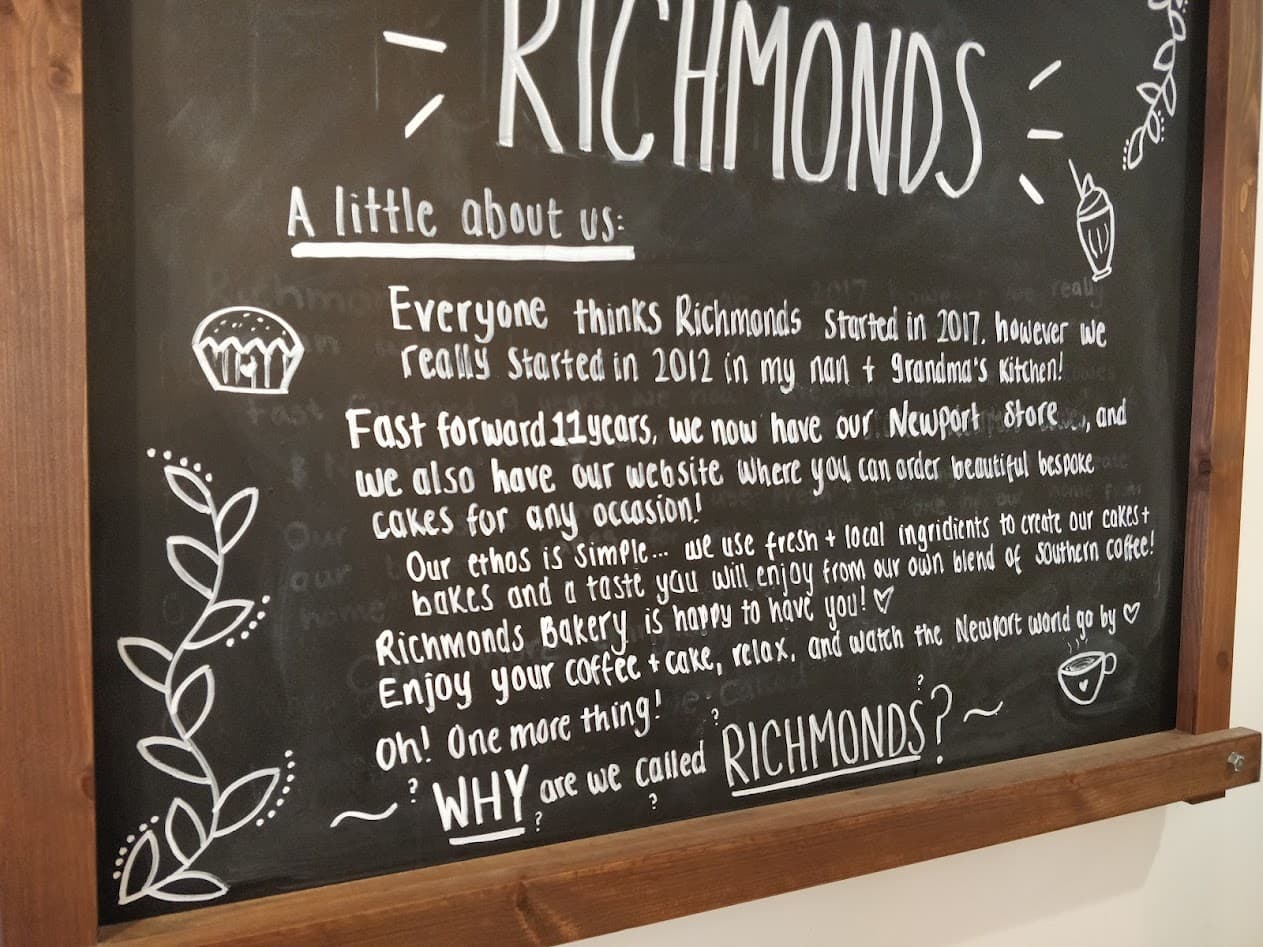 RICHMONDS
A little about us:
Everyone thinks Richmonds started in 2017. however we
really started in 2012 in my nan + grandma's kitchen!
Fast forward 11 years, we now have our Newport Store.., and
we also have our website where you can order beautiful bespoke
cakes for any occasion!
Our ethos is simple... we use fresh + local ingridients to create our cakes +
bakes and a taste you will enjoy from our own blend of southern coffee!
Richmonds Bakery is happy to have you! ♡
Enjoy your coffee + cake, relax, and watch the Newport world go by ♡
oh! One more thing!
~ ? WHY are we called RICHMONDS? ~